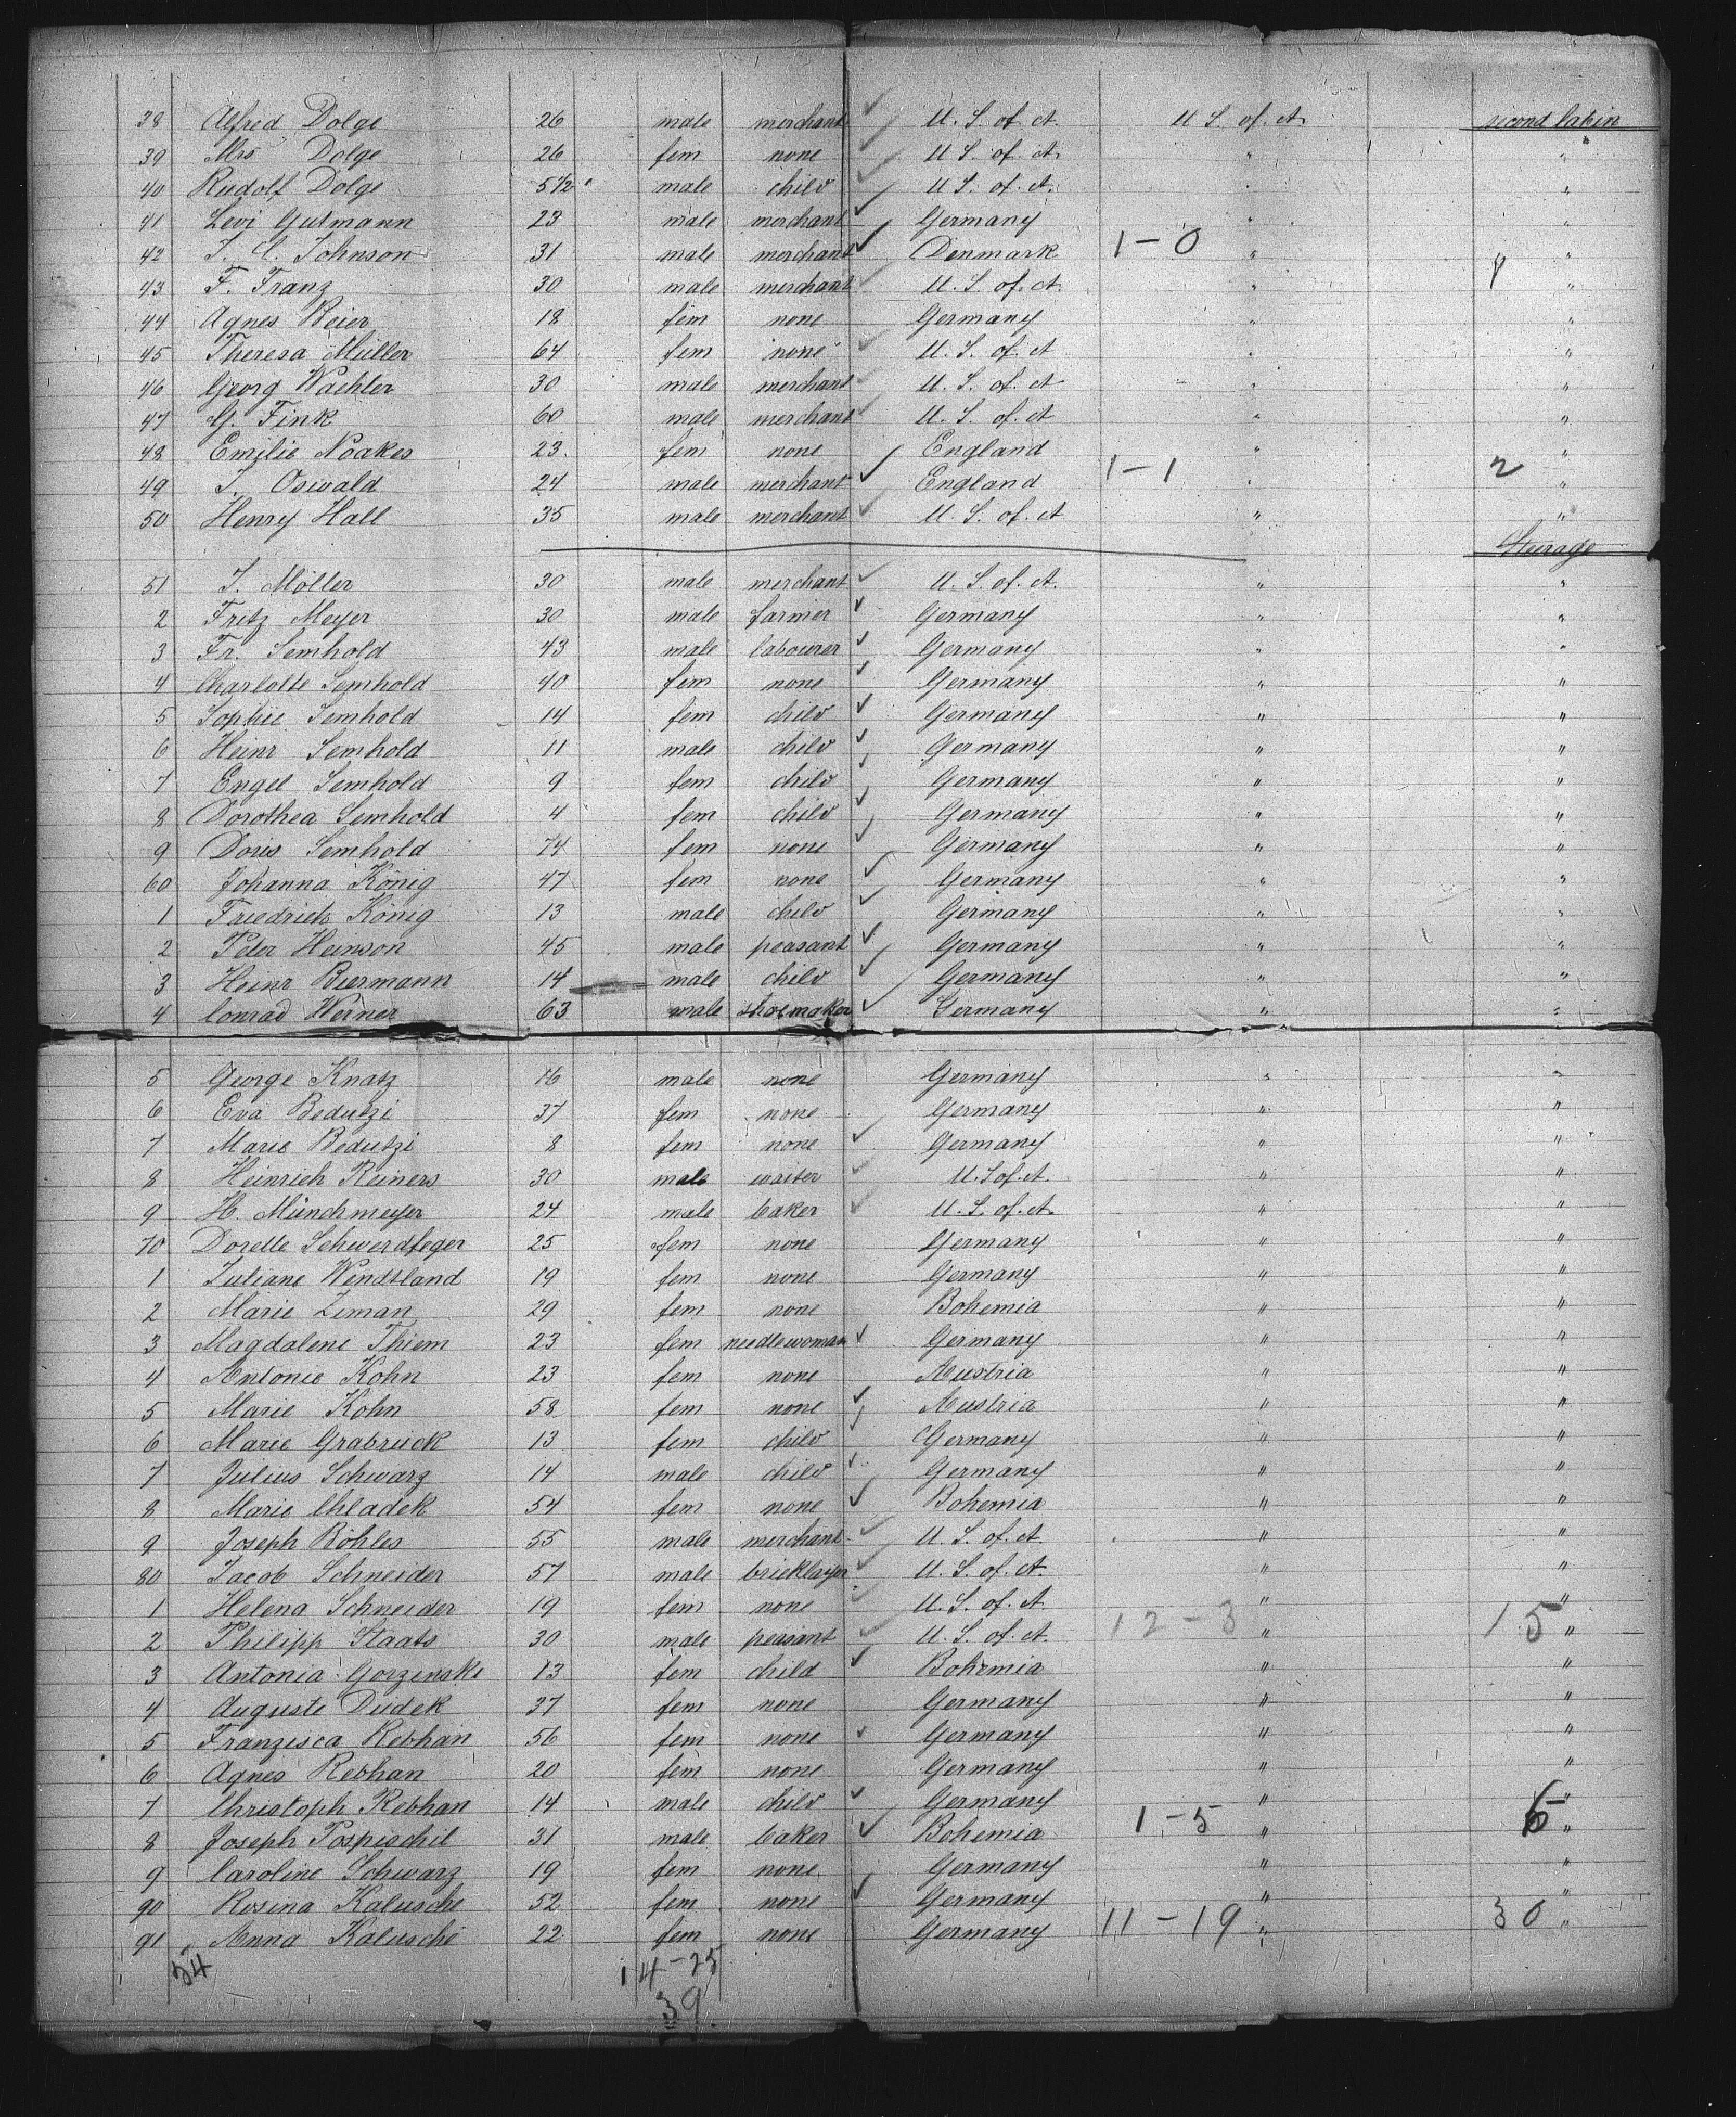 38 Alfred Dolge 26 male merchant U. S. of. A. U S. of. A. second Cabin
39 Mrs Dolge 26 fem none U S. of. A. " "
40 Rudolf Dolge 5 1/2 male child U S. of. A. " "
41 Levi Gutmann 23 male merchant Germany " "
42 J. C. Johnson 31 male merchant Denmark 1-0 " "
43 F. Franz 30 male merchant U. S. of. A. " "
44 Agnes Beier 18 fem none Germany " "
45 Theresa Müller 64 fem none U. S. of. A " "
46 Georg Wachler 30 male merchant U. S. of. A " "
47 G. Fink 60 male merchant U. S. of. A " "
48 Emilie Noakes 23. fem none England " "
49 J. Oswald 24 male merchant England 1-1 " 2 "
50 Henry Hall 35 male merchant U. S. of. A " "
Steerage
51 J. Möller 30 male merchant U. S. of. A. " "
2 Fritz Meyer 30 male farmer Germany " "
3 Fr. Semhold 43 male labourer Germany " "
4 Charlotte Semhold 40 fem none Germany " "
5 Sophie Semhold 14 fem child Germany " "
6 Heinr Semhold 11 male child Germany " "
7 Engel Semhold 9 fem child Germany " "
8 Dorothea Semhold 4 fem child Germany " "
9 Doris Semhold 74 fem none Germany " "
60 Johanna König 47 fem none Germany " "
1 Friedrich König 13 male child Germany " "
2 Peter Heinson 45 male peasant Germany " "
3 Heinr Biermann 14 male child Germany " "
4 Conrad Werner 63 male shoemaker Germany " "
5 George Knatz 16 male none Germany " "
6 Eva Bedutzi 37 fem none Germany " "
7 Marie Bedutzi 8 fem none Germany " "
8 Heinrich Reiners 30 male waiter U. S of. A. " "
9 H. Münchmeyer 24 male baker U. S. of. A. " "
70 Dorette Schwerdfeger 25 fem none Germany " "
1 Juliane Wendtland 19 fem none Germany " "
2 Marie Ziman 29 fem none Bohemia " "
3 Magdalene Thiem 23 fem needlewoman Germany " "
4 Antonie Kohn 23 fem none Austria " "
5 Marie Kohn 58 fem none Austria " "
6 Marie Grabruck 13 fem child Germany " "
7 Julius Schwarz 14 male child Germany " "
8 Marie Chladek 54 fem none Bohemia " "
9 Joseph Böhles 55 male merchant U. S. of. A. " "
80 Jacob Schneider 57 male bricklayer U. S. of. A. " "
1 Helena Schneider 19 fem none U. S. of. A. " "
2 Philipp Staats 30 male peasant U. S. of. A. 12-3 " 15 "
3 Antonia Gorzenski 13 fem child Bohemia " "
4 Auguste Dudek 37 fem none Germany " "
5 Franzisca Rebhan 56 fem none Germany " "
6 Agnes Rebhan 20 fem none Germany " "
7 Christoph Rebhan 14 male child Germany " "
8 Joseph Pospischil 31 male baker Bohemia 1-5 " 6 "
9 Caroline Schwarz 19 fem none Germany " "
90 Rosina Kalusche 52 fem none Germany " "
91 Anna Kalusche 22 fem none Germany 11-19 " 30 "
54 14-25
39